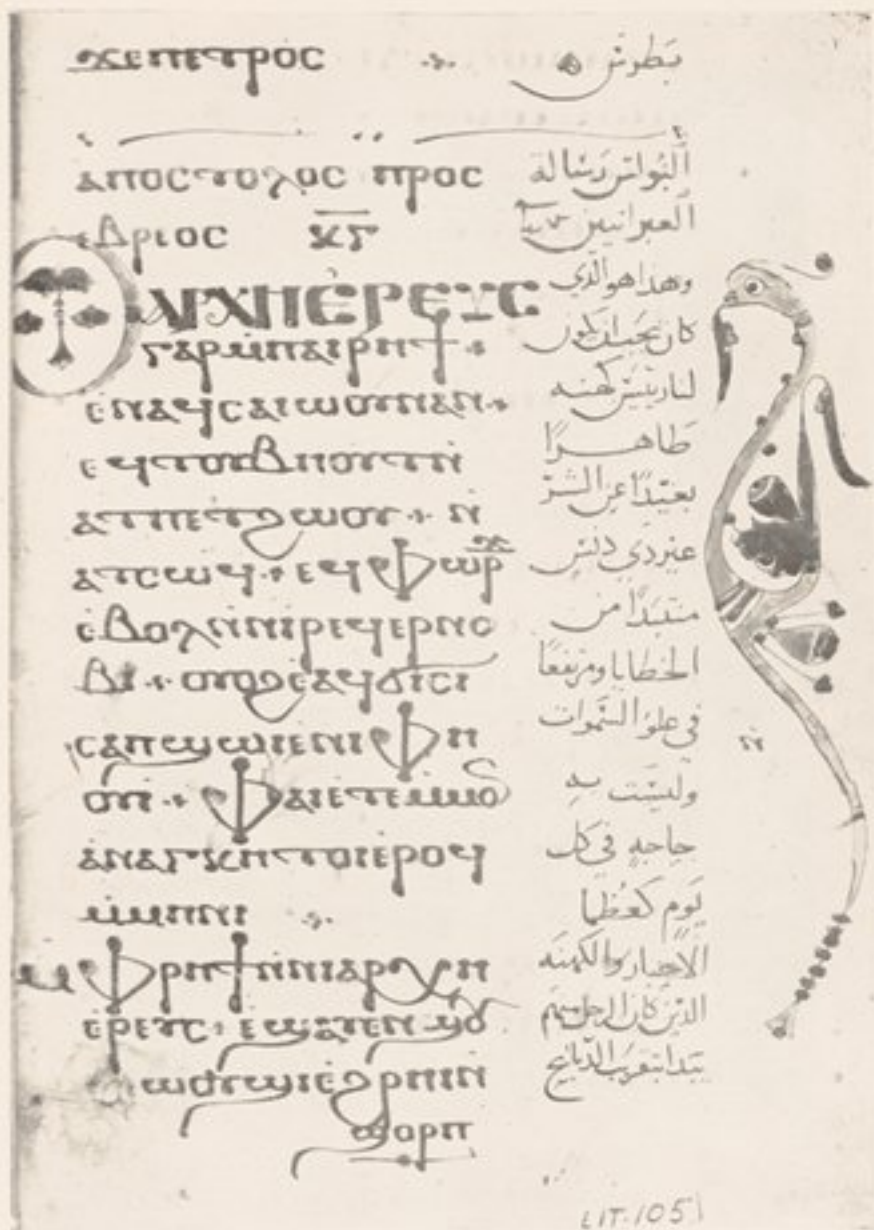 ϫⲉⲡⲉⲧⲣⲟⲥ
ⲁⲡⲟⲥⲧⲟⲗⲟⲥ ⲡⲣⲟⲥ
ⲉⲃⲣⲓⲟⲥ ⲕⲅ
ⲁⲣⲭⲏⲉⲣⲉⲩⲥ
ⲅⲁⲣⲙⲡⲁⲓⲣⲏϯ
ⲉⲛⲁϥⲥⲁⲓⲱⲟⲩⲛⲁⲛ
ⲉϥⲧⲟⲩⲃⲏⲟⲩⲧⲛ
ⲁⲧⲡⲉⲧϩⲱⲟⲩ ⲛ
ⲁⲧⲥⲱϥ ⲉϥⲫⲱⲣϫ
ⲉⲃⲟⲗⲛⲛⲓⲣⲉϥⲉⲣⲛⲟ
ⲃⲓ ⲟⲩⲟϩⲉⲁϥϭⲓⲥⲓ
ⲥⲁⲡϣⲱⲓⲉⲛⲓⲫⲏ
ⲟⲩⲓ ⲫⲁⲓⲉⲧⲉⲙⲙⲟ
ⲁⲛⲁⲅⲕⲏⲧⲟⲓⲉⲣⲟϥ
ⲙⲙⲏⲛⲓ
ⲙⲫⲣⲏϯⲛⲛⲓⲁⲣⲭⲏ
ⲉⲣⲉⲩⲥ ⲉϣⲁⲩⲉⲛ
ϣⲱⲟⲩϣⲓⲉϩⲣⲏⲓⲛ
ϣⲟⲣⲡ
بطرس
البولس رسالة
العبرانيين
وهذا هو الذي
كان يجب ان يكون
لنا رييس كهنه
طاهرًا
بعيدًا عن الشر
غير ذي دنس
مبتعدًا من
الخطايا ومرتفعًا
في علو السموات
وليست به
حاجه في كل
يوم كعظما
الاحبار والكهنه
الذين كان الرجل منهم
يبدا بتقرب الذبايح
LIT. 105